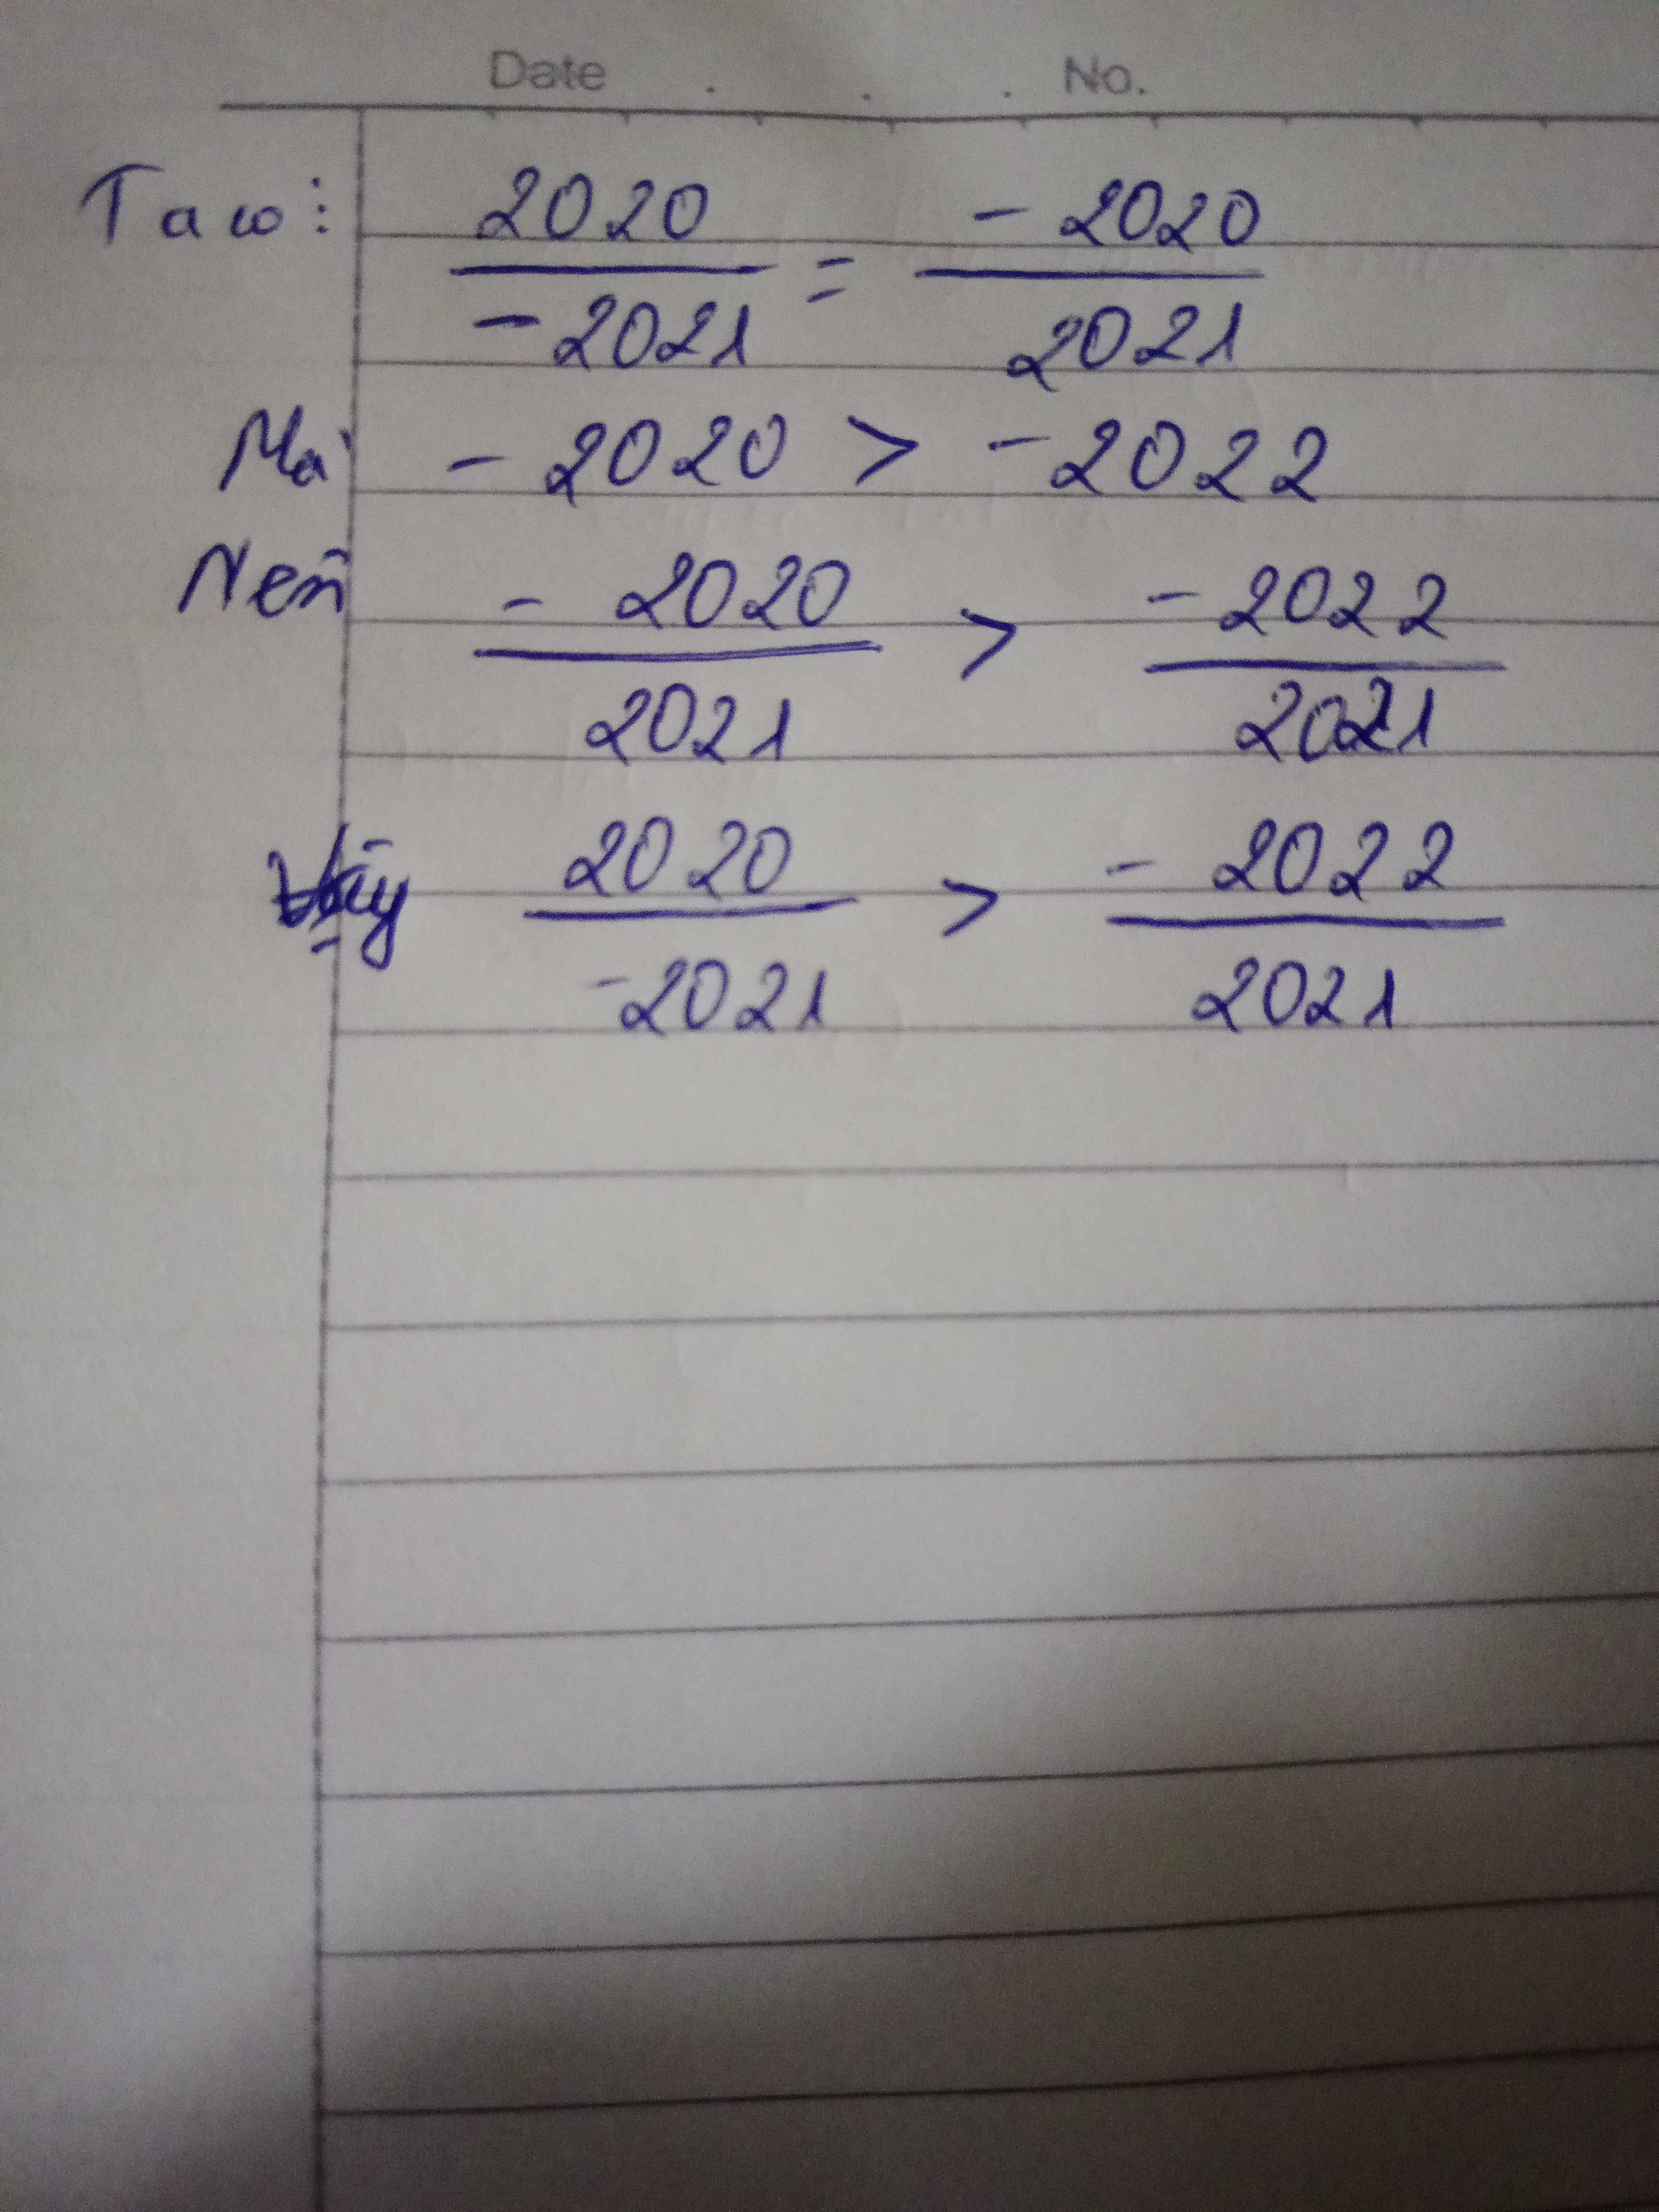 Date . . . No.
Ta có: 2020/-2021 = -2020/2021
Mà -2020 > -2022
Nên -2020/2021 > -2022/2021
Vậy 2020/-2021 > -2022/2021